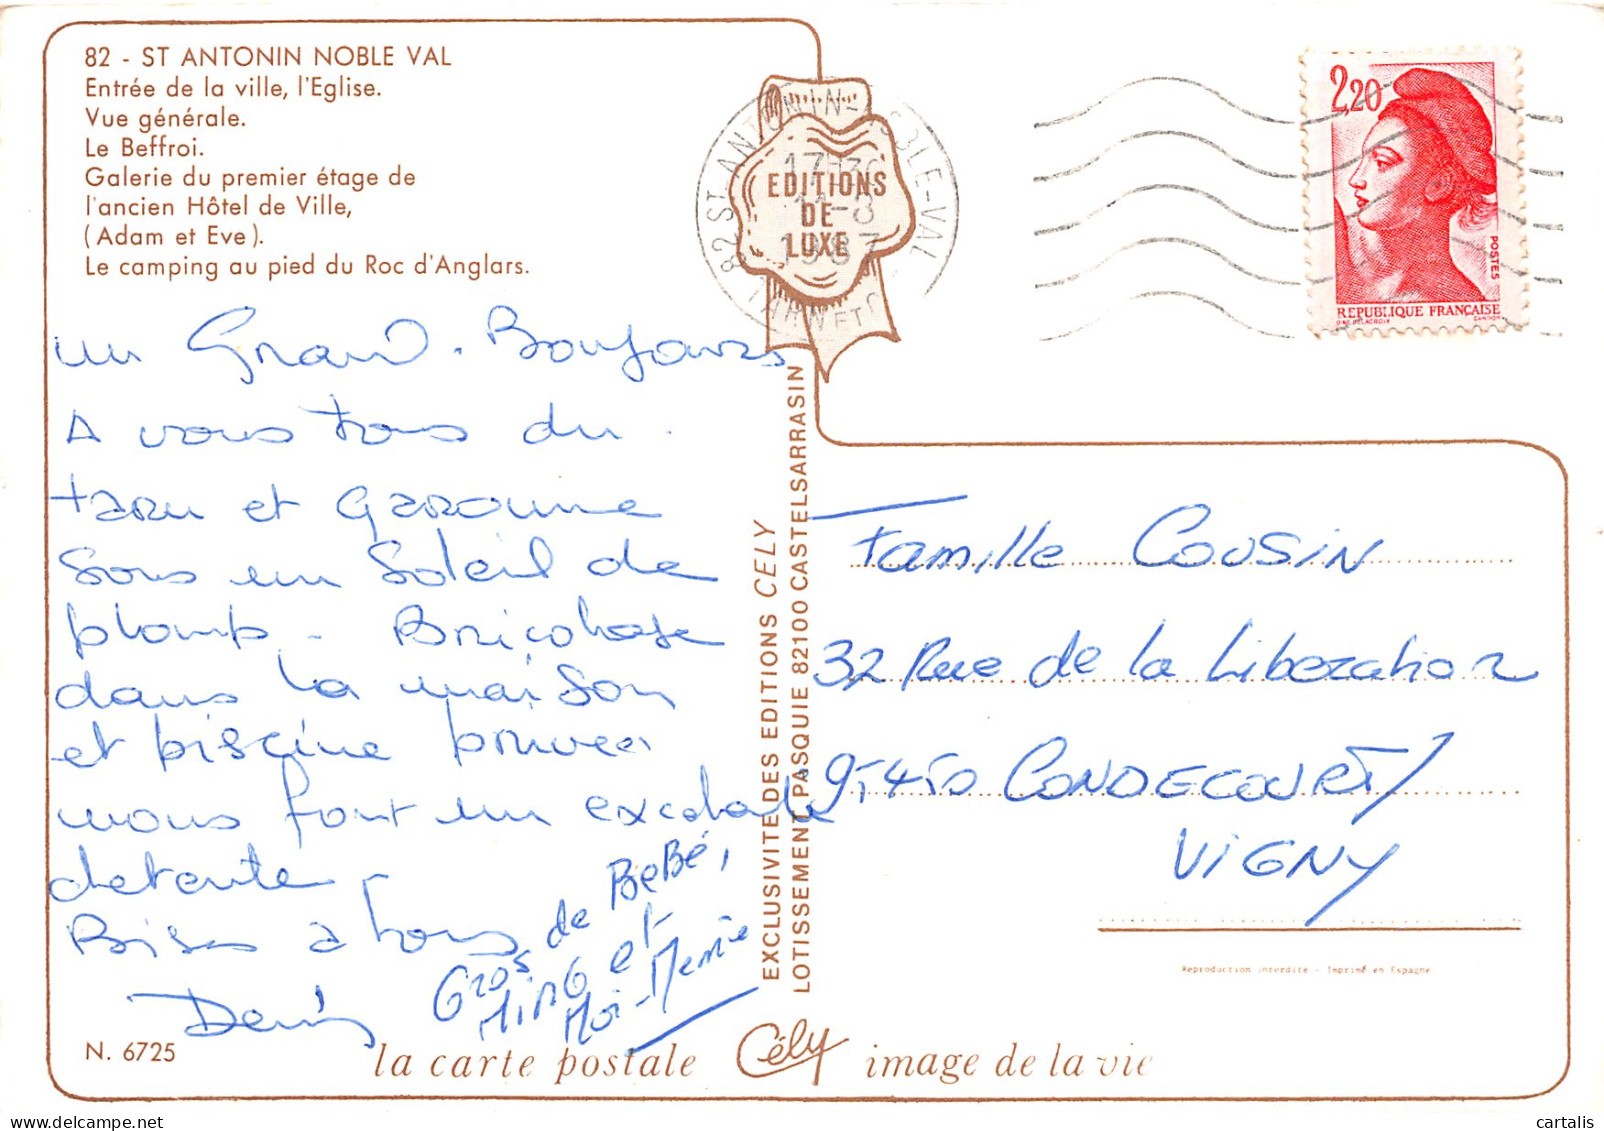 82 - ST ANTONIN NOBLE VAL
Entrée de la ville, l'Eglise.
Vue générale.
Le Beffroi.
Galerie du premier étage de
l'ancien Hôtel de Ville,
(Adam et Eve).
Le camping au pied du Roc d'Anglars.
un Grand - Bonjours
A vous tous du
tarn et Garonne
Sous un Soleil de
plomb - Bricolage
dans la maison
et piscine privée
nous font un
detente -
Bises à tous
Denis
Gros de BéBé,
MING et
Moi-Memie
N. 6725
EDITIONS
DE
LUXE
82 ST ANTONIN-NOBLE-VAL
1987
2,20
POSTES
REPUBLIQUE FRANÇAISE
D'AP. DELACROIX GANDON
EXCLUSIVITE DES EDITIONS CELY
LOTISSEMENT PASQUIE 82100 CASTELSARRASIN
Famille COUSIN
32 Rue de la Liberation
95450 CONDECOURT/
VIGNY
Reproduction interdite - Imprimé en Espagne
la carte postale Cély image de la vie
cartalis